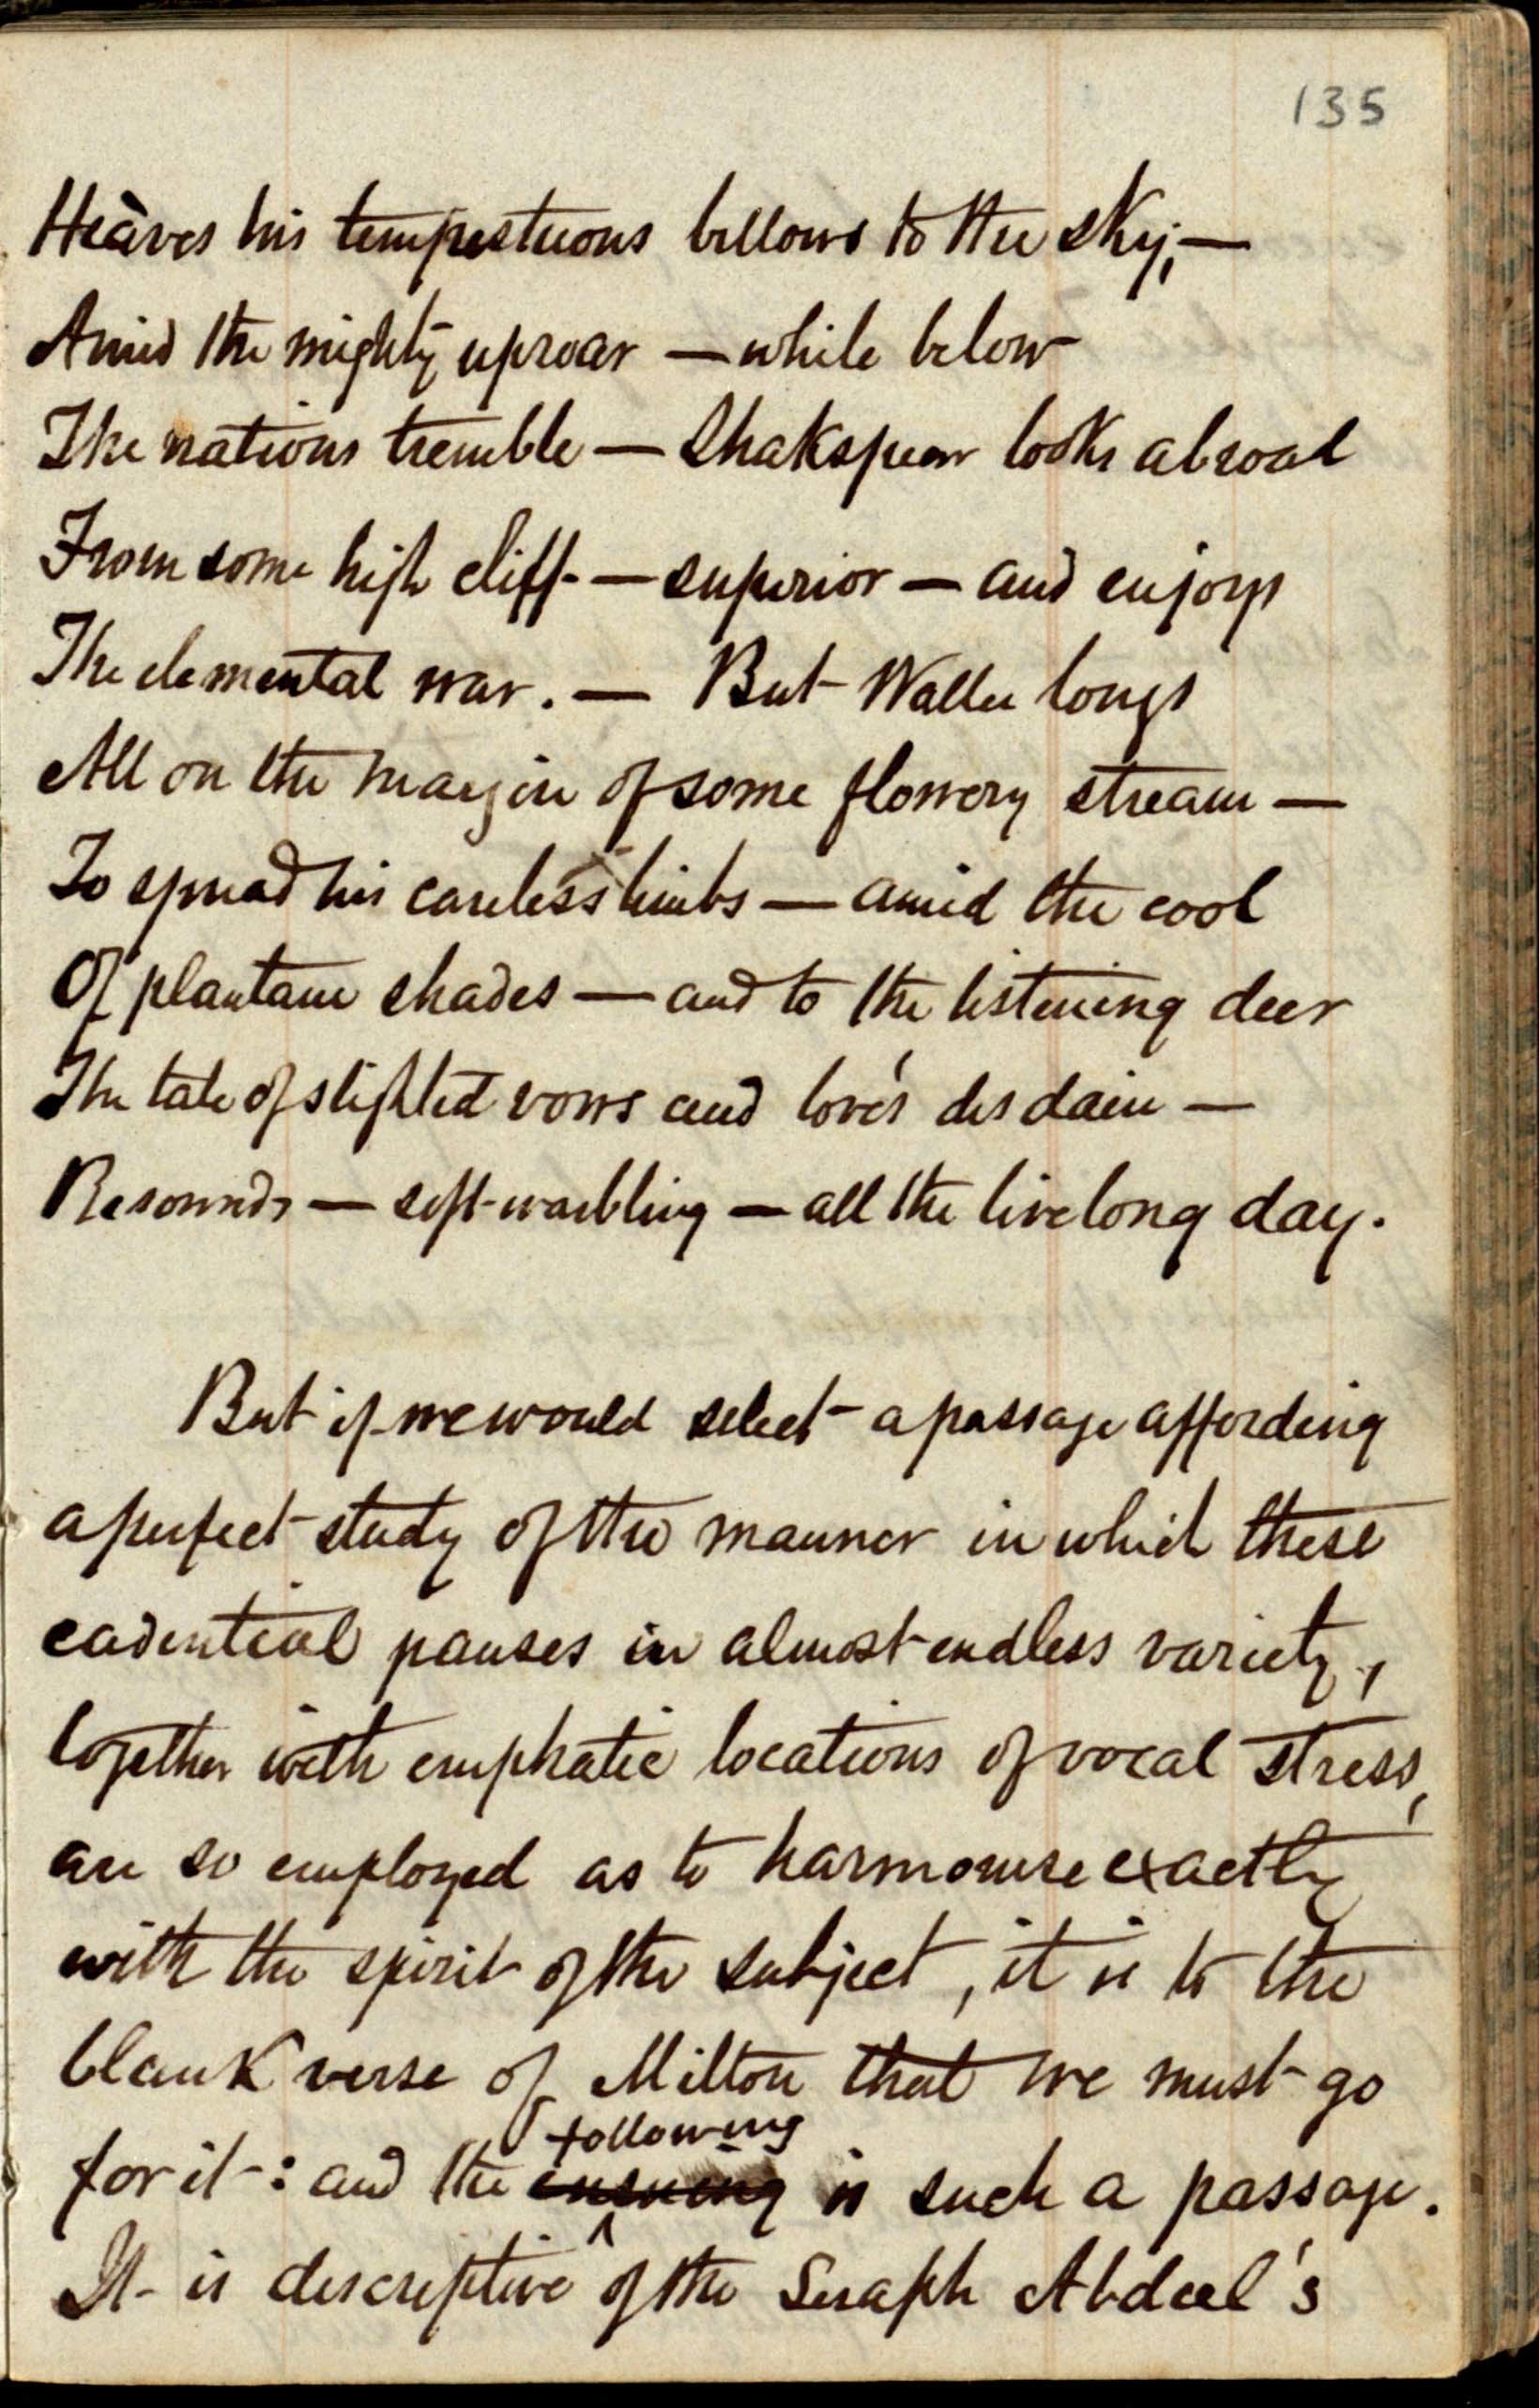 135
Heaves his tempestuous billows to the sky; —
Amid the mighty uproar — while below
The nations tremble — Shakspear looks abroad
From some high cliff — superior — and enjoys
The elemental war. — But Waller longs
All on the margin of some flowery stream —
To spread his careless limbs — amid the cool
Of plantane shades — and to the listening deer
The tale of slighted vows and love's disdain —
Resounds — soft-warbling — all the livelong day.
But if we would select a passage affording
a perfect study of the manner in which these
cadential pauses in almost endless variety,
together with emphatic locations of vocal stress,
are so employed as to harmonise exactly
with the spirit of the subject, it is to the
blank verse of Milton that we must go
following
for it: and the ensuing is such a passage.
It is descriptive of the Seraph Abdeel's